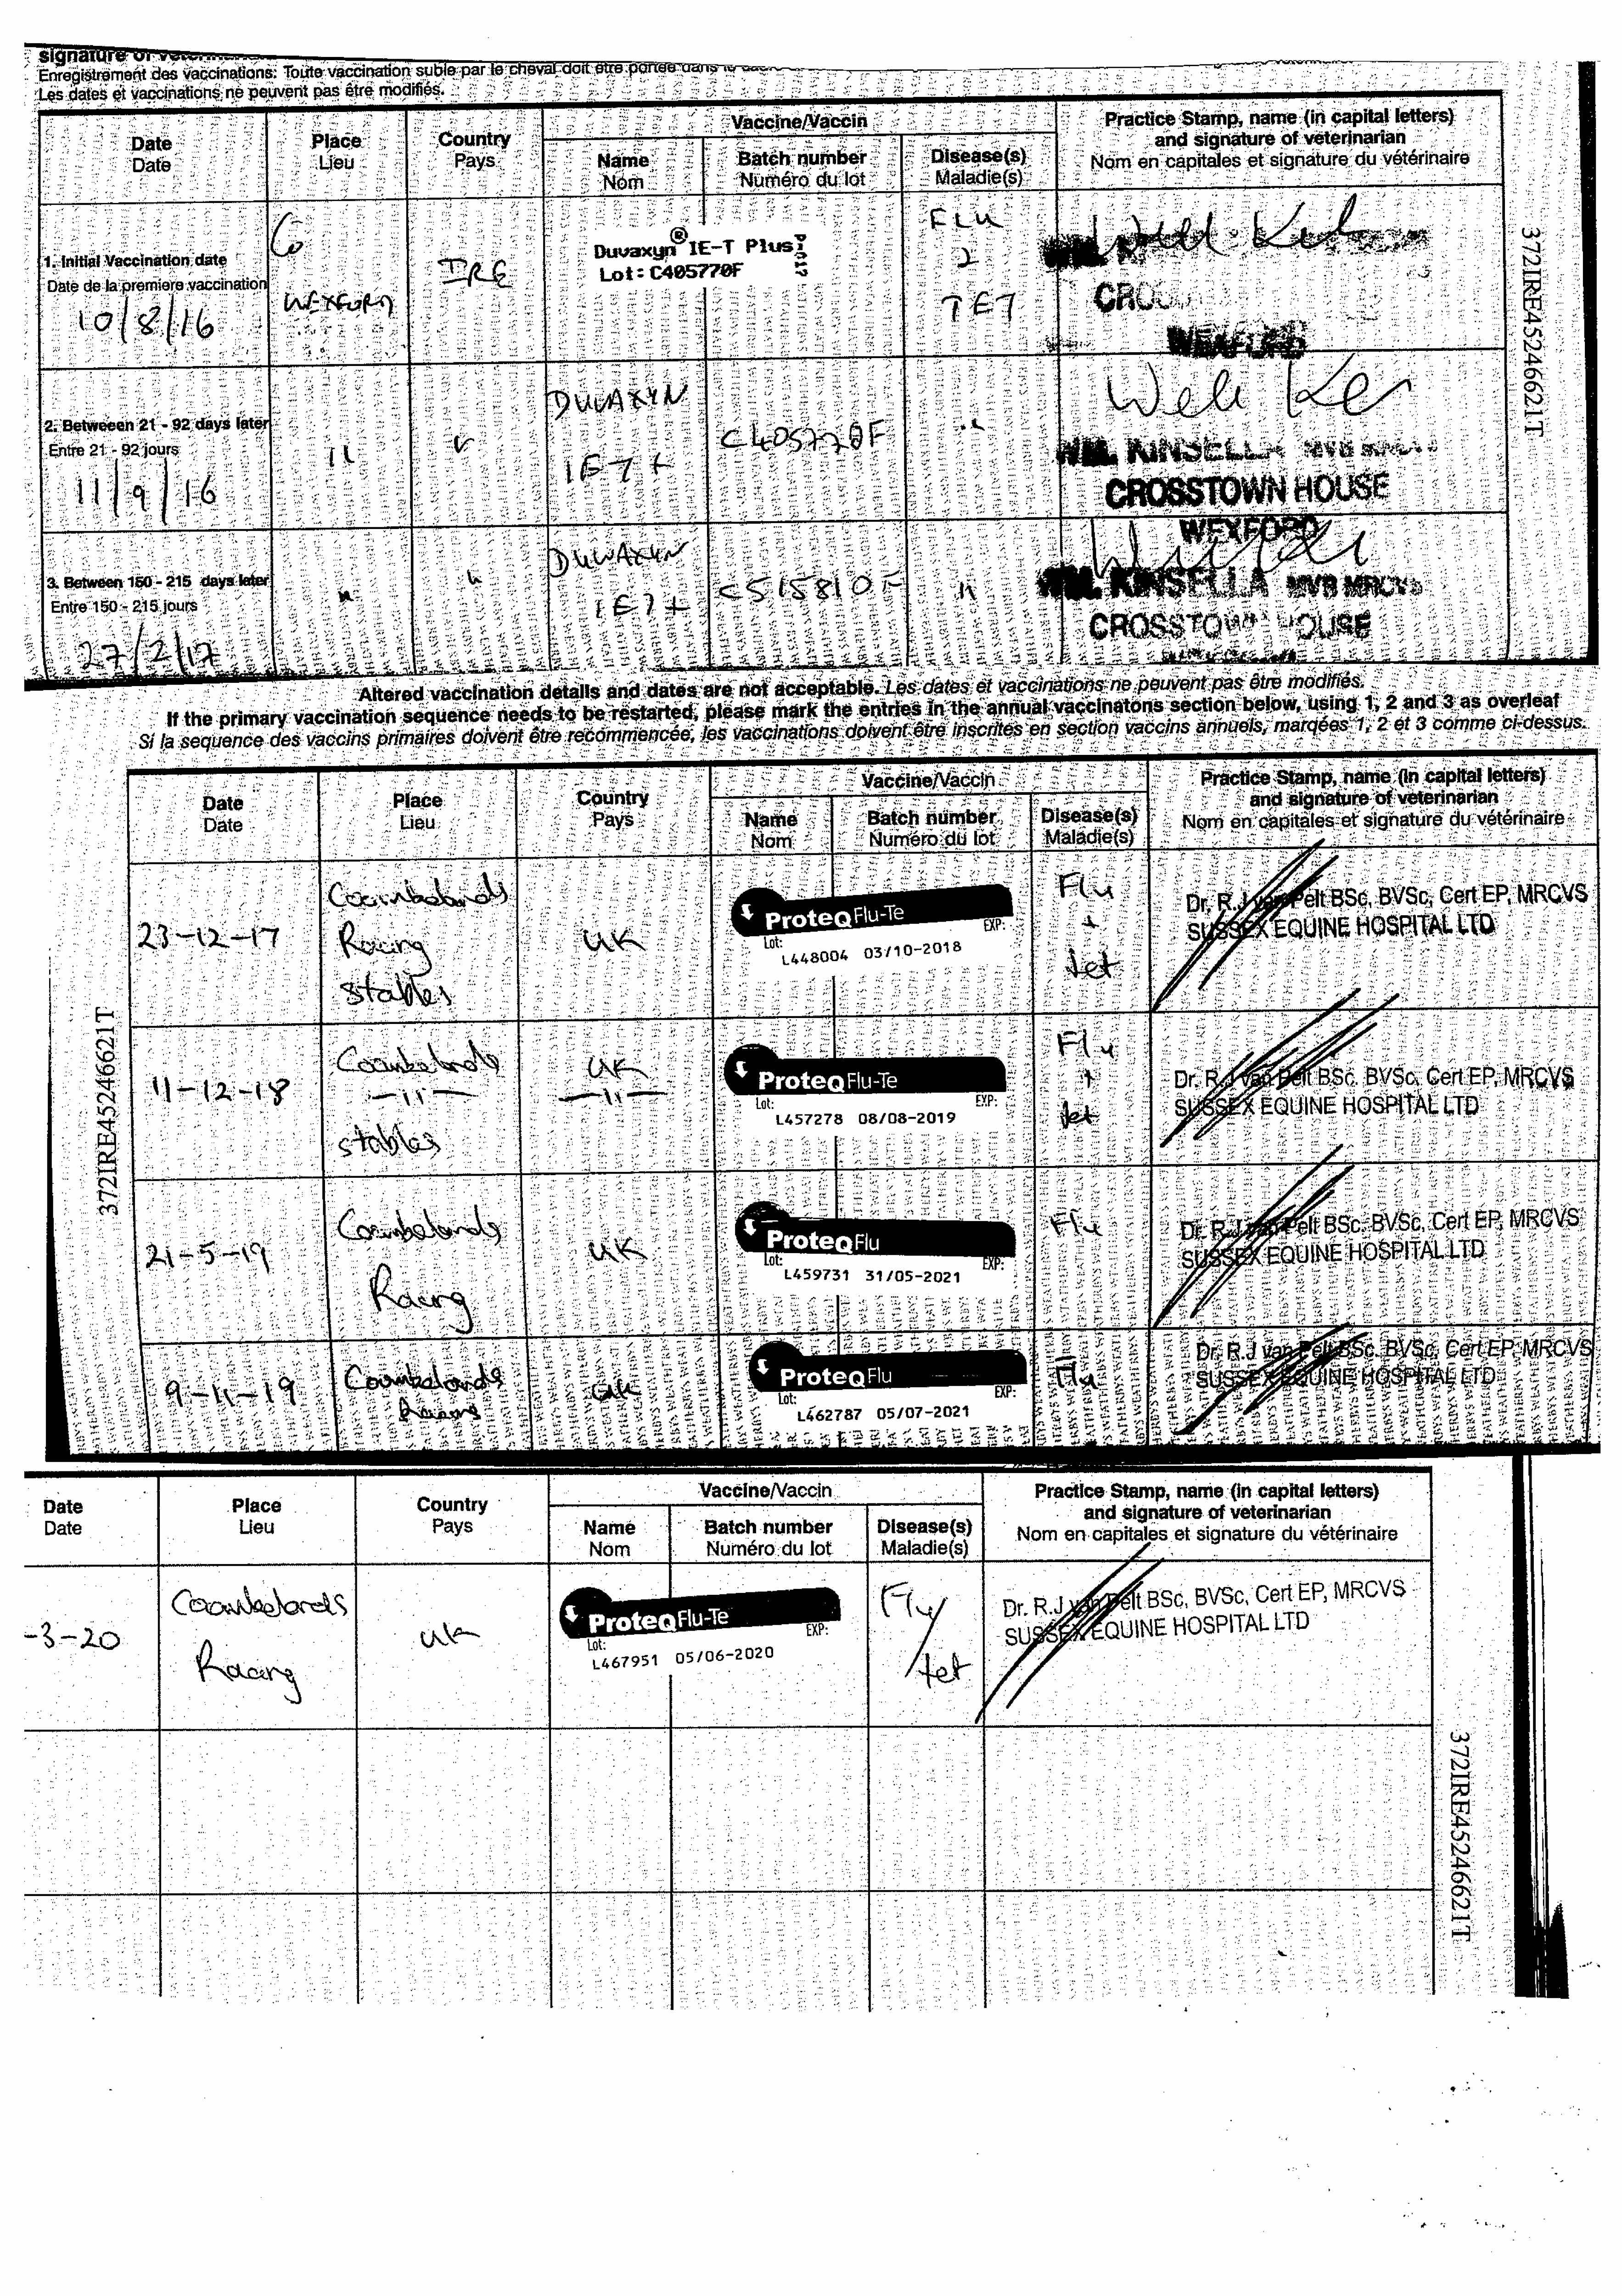 signature of
Enregistrement des vaccinations: Toute vaccination subie par le cheval doit être portée dans le
Les dates et vaccinations ne peuvent pas être modifiés.
Date
Date
Place
Lieu
Country
Pays
Vaccine/Vaccin
Name
Nom
Batch number
Numéro du lot
Disease(s)
Maladie(s)
Practice Stamp, name (in capital letters)
and signature of veterinarian
Nom en capitales et signature du vétérinaire
1. Initial Vaccination date
Date de la premiere vaccination
10/8/16
Co
WEXFORD
IRE
Duvaxyn® IE-T Plus
Lot: C405770F
FLU
TET
WEXFORD
2. Betweeen 21 - 92 days later
Entre 21 - 92 jours
11/9/16
"
"
DUVAXYN
IET+
C405770F
"
WM. KINSELLA MVB MRCVS
CROSSTOWN HOUSE
WEXFORD
3. Between 150 - 215 days later
Entre 150 - 215 jours
27/2/17
"
"
DUVAXYN
IET+
C515810F
"
WM. KINSELLA MVB MRCVS
CROSSTOWN HOUSE
372IRE45246621T
Altered vaccination details and dates are not acceptable. Les dates et vaccinations ne peuvent pas être modifiés.
If the primary vaccination sequence needs to be restarted, please mark the entries in the annual vaccinatons section below, using 1, 2 and 3 as overleaf
Si la sequence des vaccins primaires doivent être recommencée, les vaccinations doivent être inscrites en section vaccins annuels, marqées 1, 2 et 3 comme ci-dessus.
Date
Date
Place
Lieu
Country
Pays
Vaccine/Vaccin
Name
Nom
Batch number
Numéro du lot
Disease(s)
Maladie(s)
Practice Stamp, name (in capital letters)
and signature of veterinarian
Nom en capitales et signature du vétérinaire
23-12-17
Coombelands
Racing
stables
UK
ProteqFlu-Te
Lot: EXP:
L448004 03/10-2018
Flu
+
tet
Dr. R.J van Pelt BSc, BVSc, Cert EP, MRCVS
SUSSEX EQUINE HOSPITAL LTD
11-12-18
Coombelands
-11-
stables
UK
-11-
ProteqFlu-Te
Lot: EXP:
L457278 08/08-2019
Flu
+
tet
Dr. R.J van Pelt BSc, BVSc, Cert EP, MRCVS
SUSSEX EQUINE HOSPITAL LTD
21-5-19
Coombelands
Racing
UK
ProteqFlu
Lot: EXP:
L459731 31/05-2021
Flu
Dr. R.J van Pelt BSc, BVSc, Cert EP, MRCVS
SUSSEX EQUINE HOSPITAL LTD
9-11-19
Coombelands
Racing
UK
ProteqFlu
Lot: EXP:
L462787 05/07-2021
Flu
Dr. R.J van Pelt BSc, BVSc, Cert EP, MRCVS
SUSSEX EQUINE HOSPITAL LTD
372IRE45246621T
Date
Date
Place
Lieu
Country
Pays
Vaccine/Vaccin
Name
Nom
Batch number
Numéro du lot
Disease(s)
Maladie(s)
Practice Stamp, name (in capital letters)
and signature of veterinarian
Nom en capitales et signature du vétérinaire
-3-20
Coombelands
Racing
UK
ProteqFlu-Te
Lot: EXP:
L467951 05/06-2020
Flu/
tet
Dr. R.J van Pelt BSc, BVSc, Cert EP, MRCVS
SUSSEX EQUINE HOSPITAL LTD
372IRE45246621T